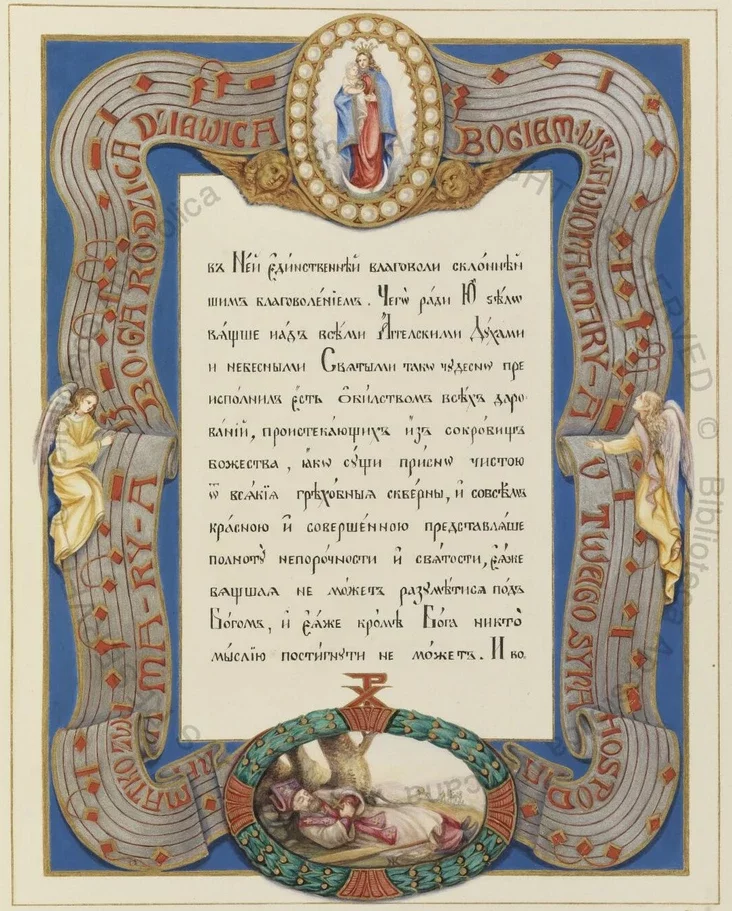 BO·GA RO·DZICA
DZIEWICA
BOGIEM
MARY-A
U TWEGO SYNA
HOSPODI
MATKO
MA-RY-A
въ Не́й є҆ди́нственнѣй благоволи склоннѣй
шимъ благоволе́нїемъ. Чегѡ ра́ди Ю҆ ѕѣлѡ
вѧщше надъ всѣми А҆́гг҃елскими Ду́хами
и небесными Святыми такѡ чꙋдеснѡ пре
исполнилъ є҆́сть ѻ҆би́лствомъ всѣ́хъ даро-
ваній, проистекающихъ и҆зъ сокровищъ
божества, ꙗ҆́кѡ сꙋ́щи при́снѡ чистою
ѿ всѧ́кїѧ грѣхо́вныѧ скве́рны, и҆ совсѣмъ
кра́сною и҆ соверше́нною представлѧ́ше
полнотꙋ̀ непоро́чности и҆ свѧ́тости, є҆ѧ́же
вѧщшаѧ не мо́жетъ разꙋмѣ́тисѧ по́дъ
Бо́гомъ, и҆ є҆ѧ́же кромѣ̀ Бо́га никто̀
мы́слїю пости́гнꙋти не мо́жетъ. И во.